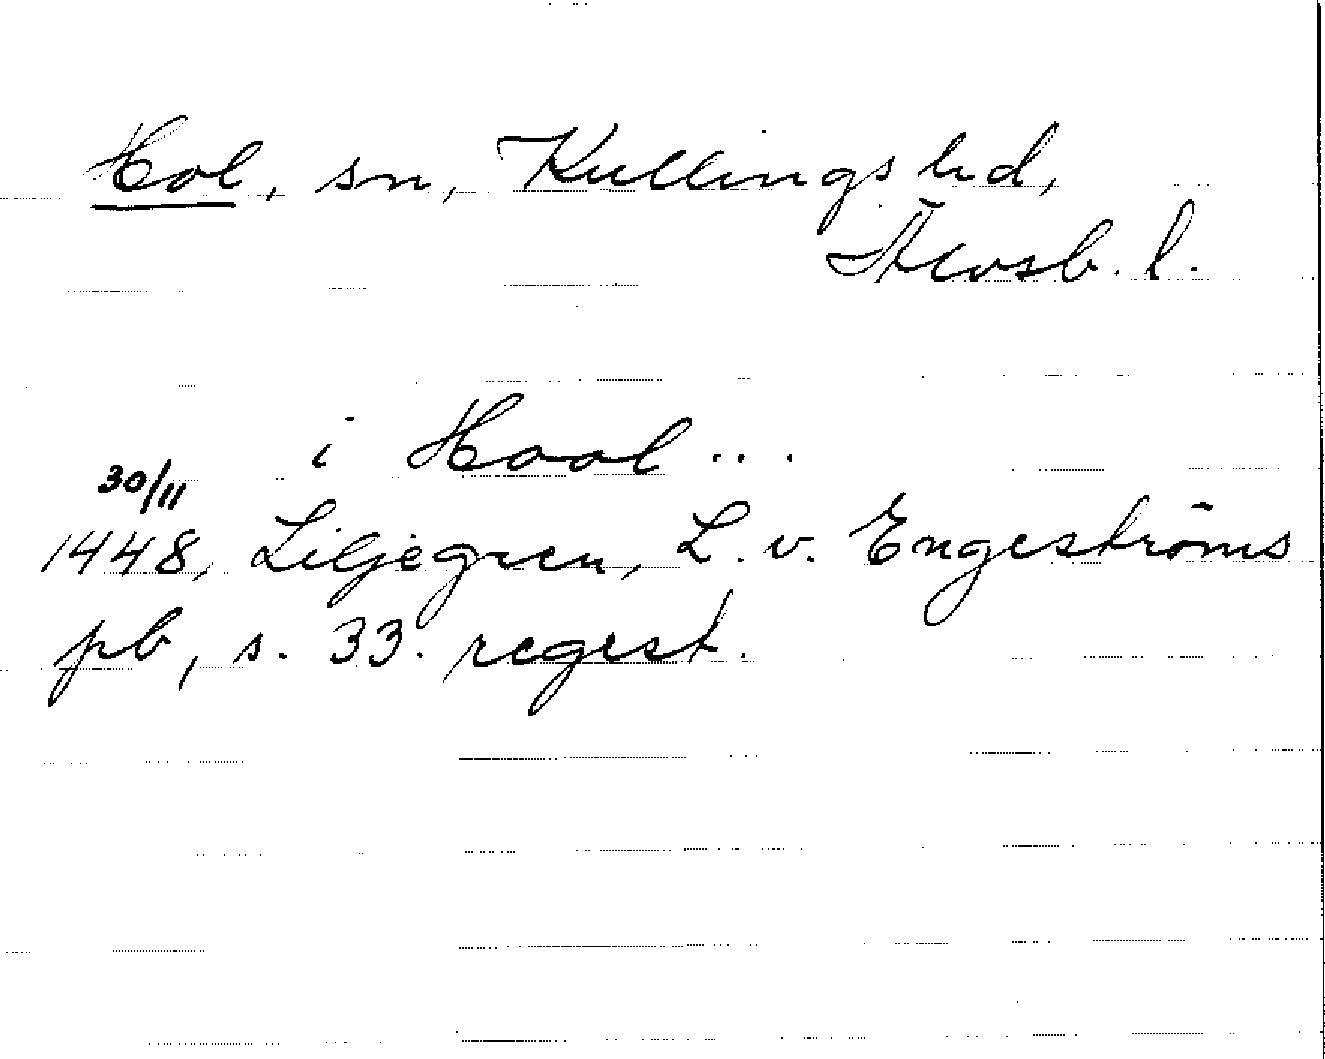 Hol, sn, Kullings hd,
Älvsb. l.
i Hool...
30/11
1448, Liljegren, L. v. Engeströms
pb, s. 33. regest.